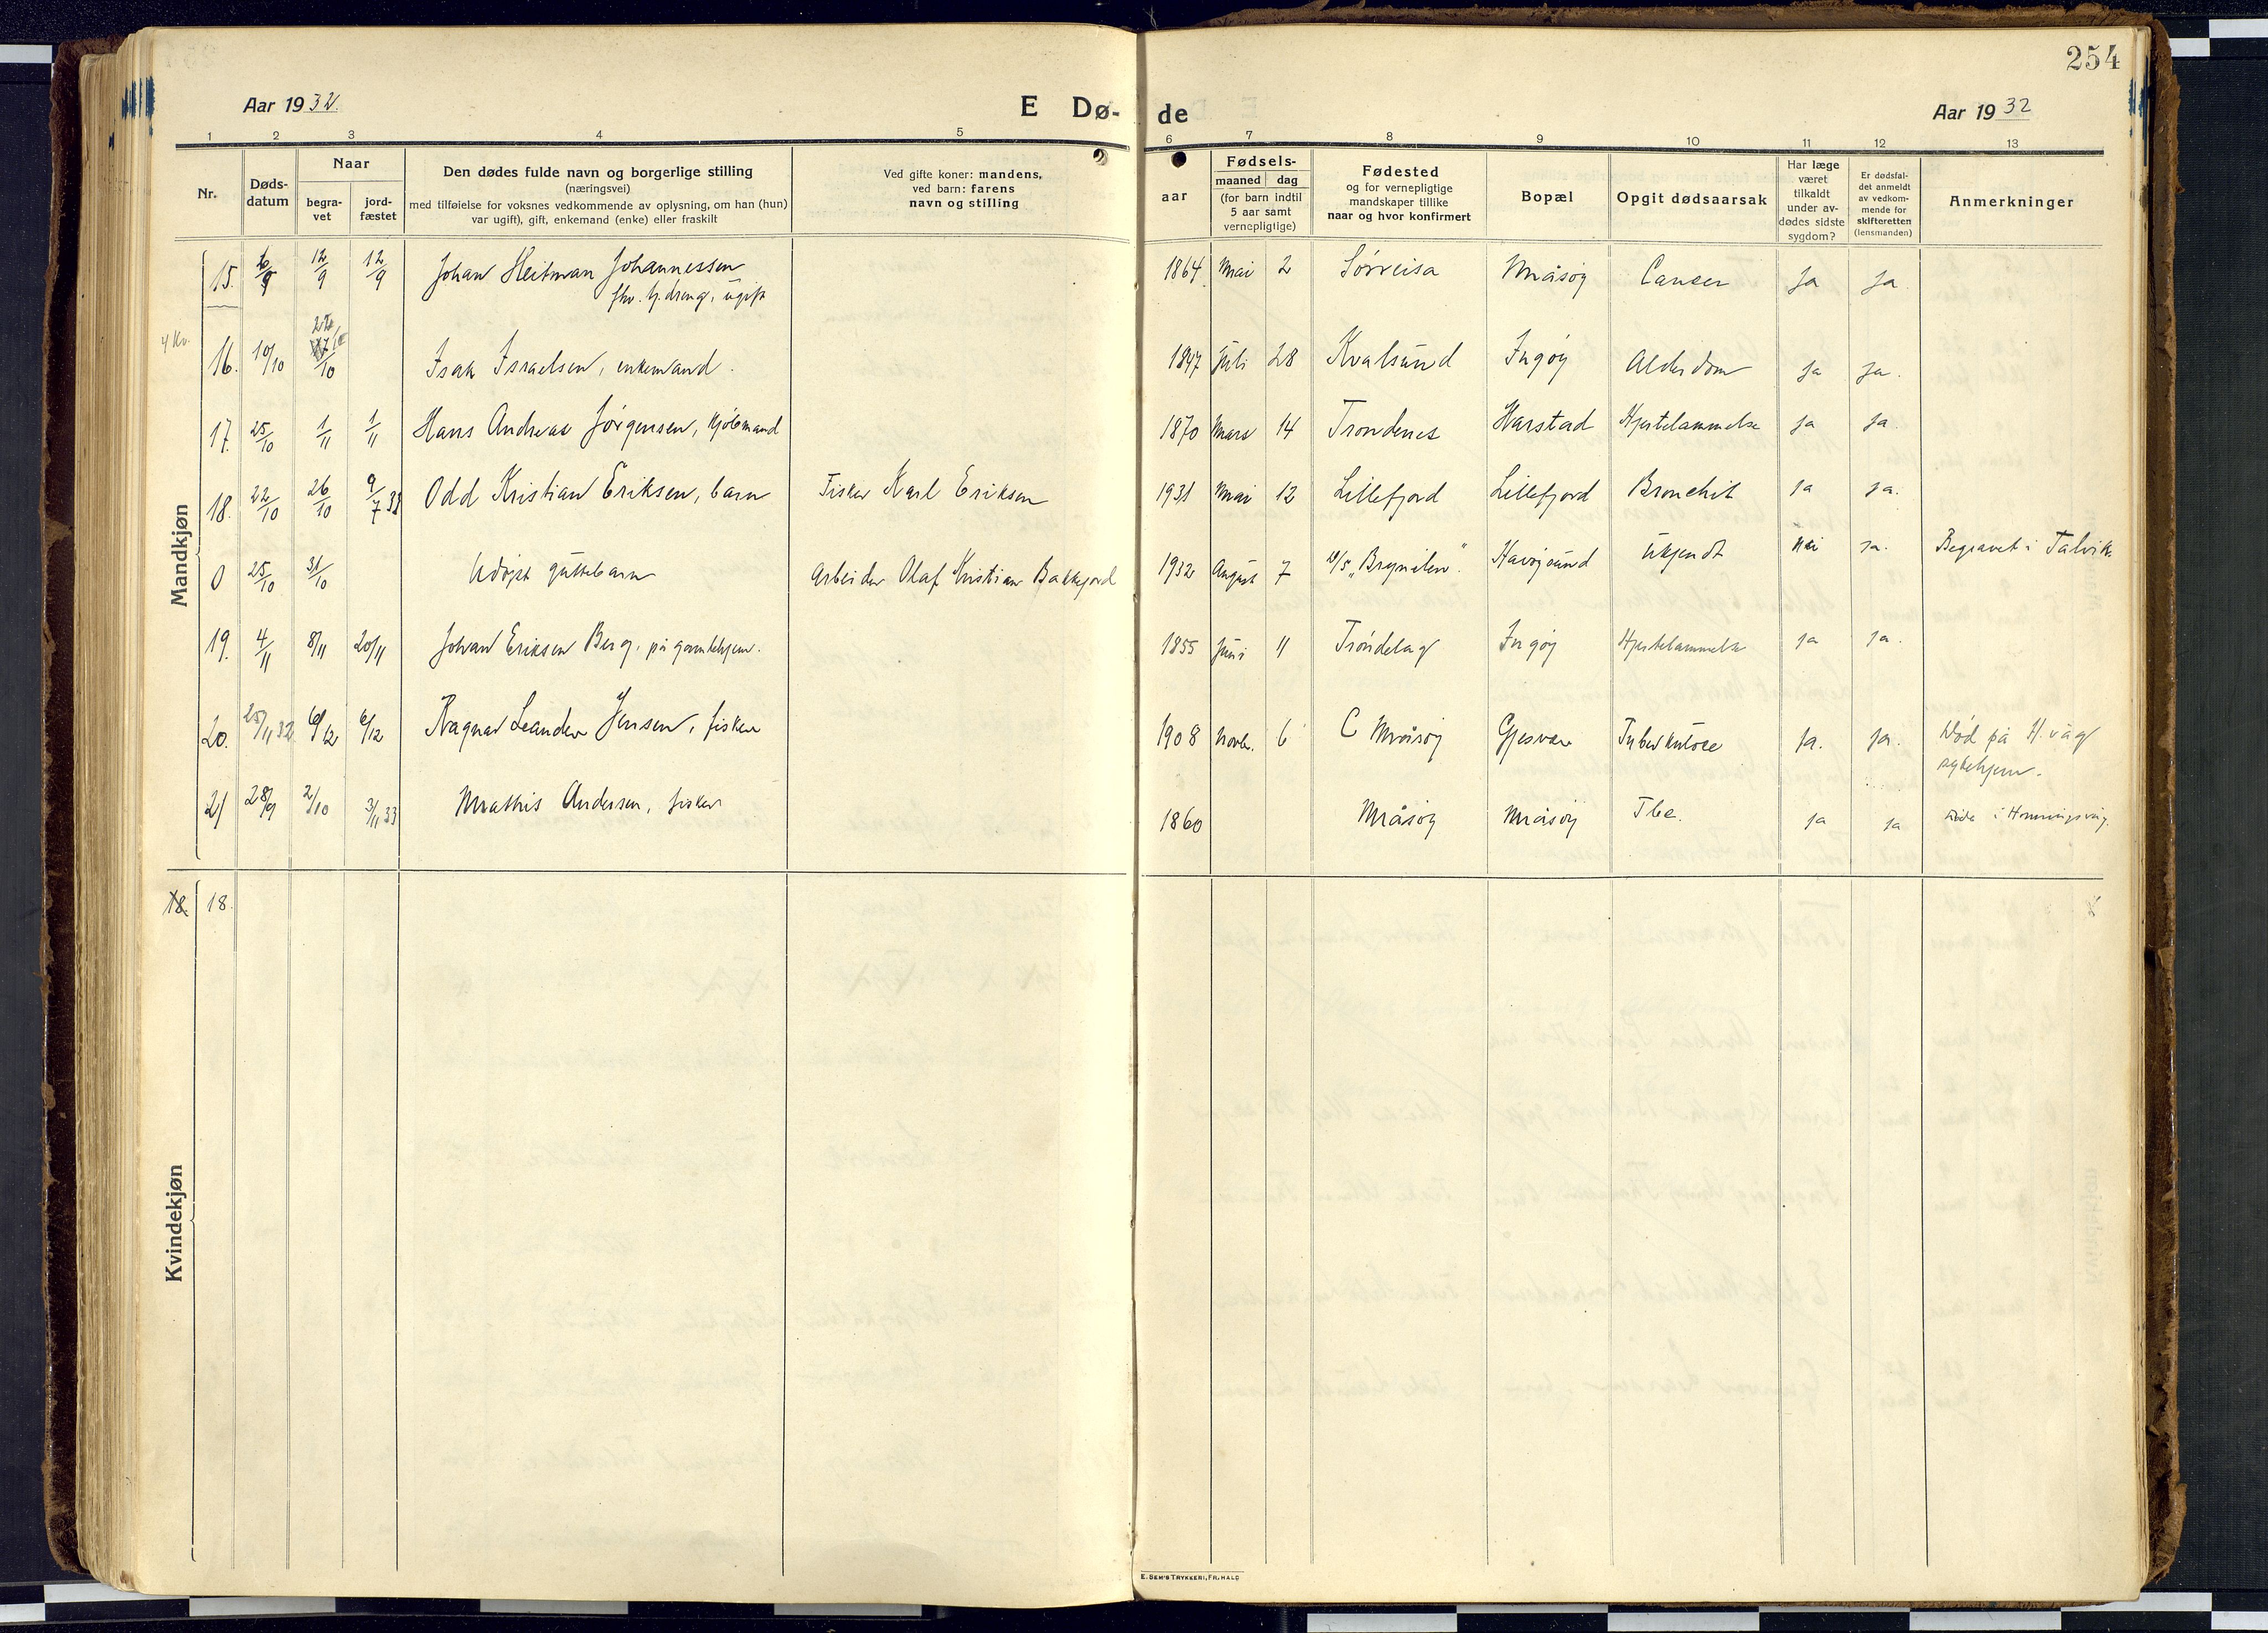 254
Aar 1932.
E Dø-
de
Aar 1932
1 2 3 4 5 6 7 8 9 10 11 12 13
Nr.
Døds-
datum
Naar
begra-
vet
jord-
fæstet
Den dødes fulde navn og borgerlige stilling
(næringsvei)
med tilføielse for voksnes vedkommende av oplysning, om han (hun)
var ugift), gift, enkemand (enke) eller fraskilt
Ved gifte koner: mandens,
ved barn: farens
navn og stilling
aar
Fødsels-
maaned dag
(for barn indtil
5 aar samt
vernepligtige)
Fødested
og for vernepligtige
mandskaper tillike
naar og hvor konfirmert
Bopæl
Opgit dødsaarsak
Har læge
været
tilkaldt
under av-
dødes sidste
sygdom?
Er dødsfal-
det anmeldt
av vedkom-
mende for
skifteretten
(lensmanden)
Anmerkninger
Mandkjøn
15. 6/9 12/9 12/9 Johan Heitman Johannessen 1864 Mai 2 Sørreisa Måsøy Cancer Ja Ja.
ugift
4 Kv.
16. 10/10 Isak Israelsen, enkemand. 1847 Juli 28 Kvalsund Ingøy Alderdom Ja Ja.
17. 25/10 1/11 1/11 Hans Andreas Jørgensen, kjøbmand 1870 Mars 14 Trondenes Harstad Hjertelammelse Ja Ja.
18. 22/10 26/10 9/7 33 Odd Kristian Eriksen, barn Fisker Karl Eriksen 1931 Mai 12 Lillefjord Lillefjord Bronchit Ja Ja.
0 25/10 31/10 Udøpt guttebarn Arbeider Olaf Kristian Bakkejord 1932 August 7 D/S „Brynilen". Havøysund Ukjendt Nei Ja. Begravet i Talvik
19. 4/11 8/11 20/11 Johan Eriksen Berg, på gamlehjem. 1855 Juni 11 Trøndelag Ingøy Hjertelammelse Ja Ja.
20. 25/11 32 6/12 6/12 Ragnar Leander Jensen, fisker 1908 Novbr. 6 Måsøy Gjesvær Tuberkulose Ja. Ja. Død på H.våg
sykehjem.
21 28/9 2/10 3/11 33 Mathis Andersen, fisker 1860 Måsøy Måsøy Tbc. Ja Ja Døde i Honningsvåg.
Kvindekjøn
18. 18.
E. SEM'S TRYKKERI, FR.HALD